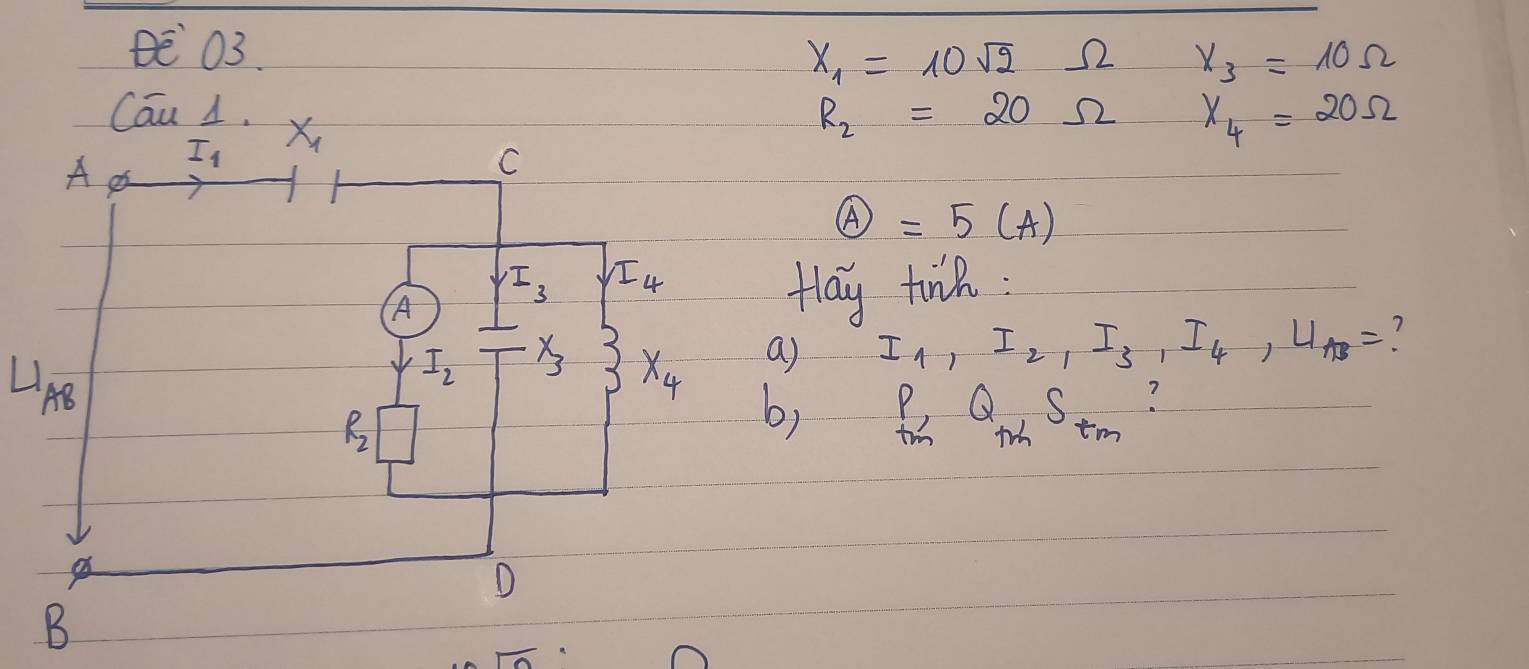 ĐỀ 03.
Câu 1.
X₁ = 10√2 Ω X₃ = 10Ω
R₂ = 20 Ω X₄ = 20Ω
A I₁ X₁ C
Ⓐ = 5 (A)
A I₂ R₂ I₃ X₃ I₄ X₄
U_AB
B D
Hãy tính :
a) I₁, I₂, I₃, I₄, U_AB = ?
b, P_tm, Q_tm S_tm ?